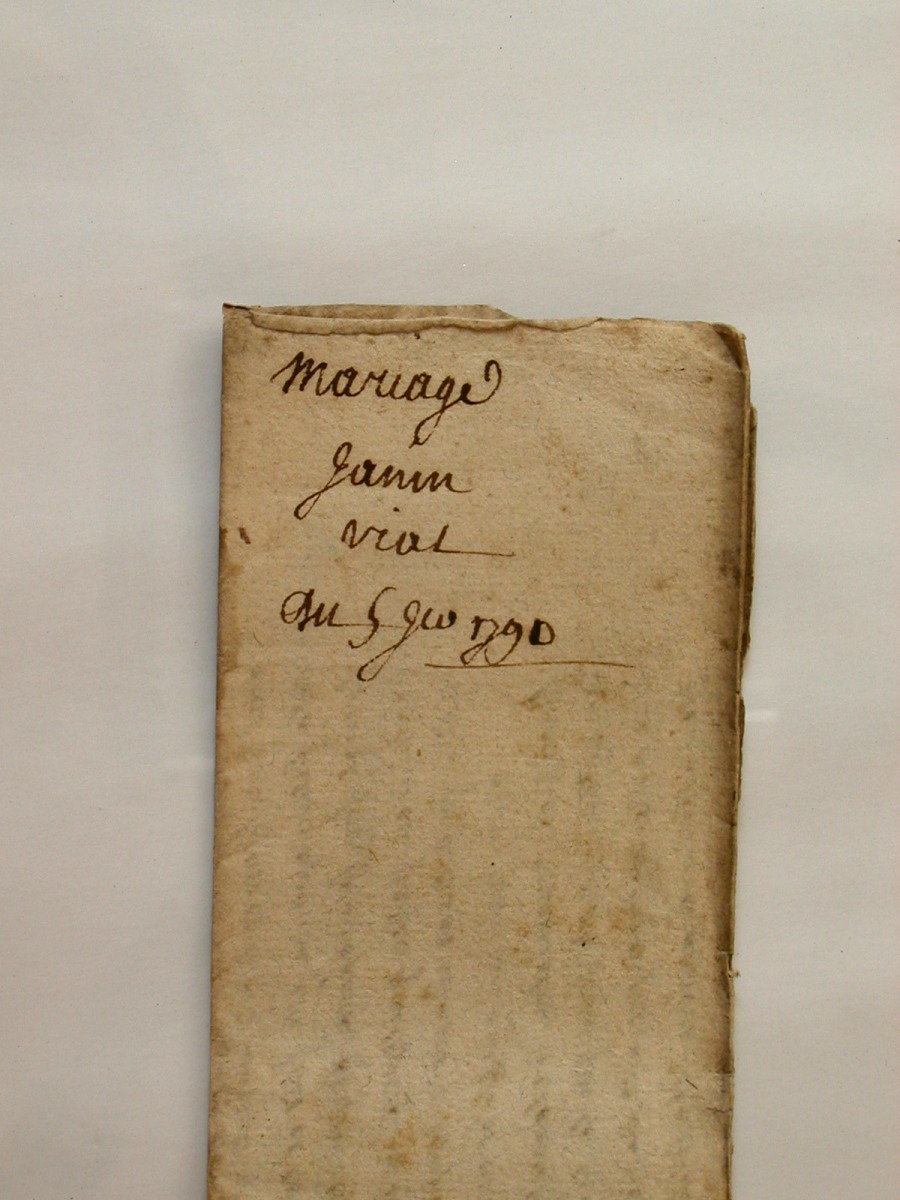 Mariage
Janin
vial
Du 5 Jer 1790